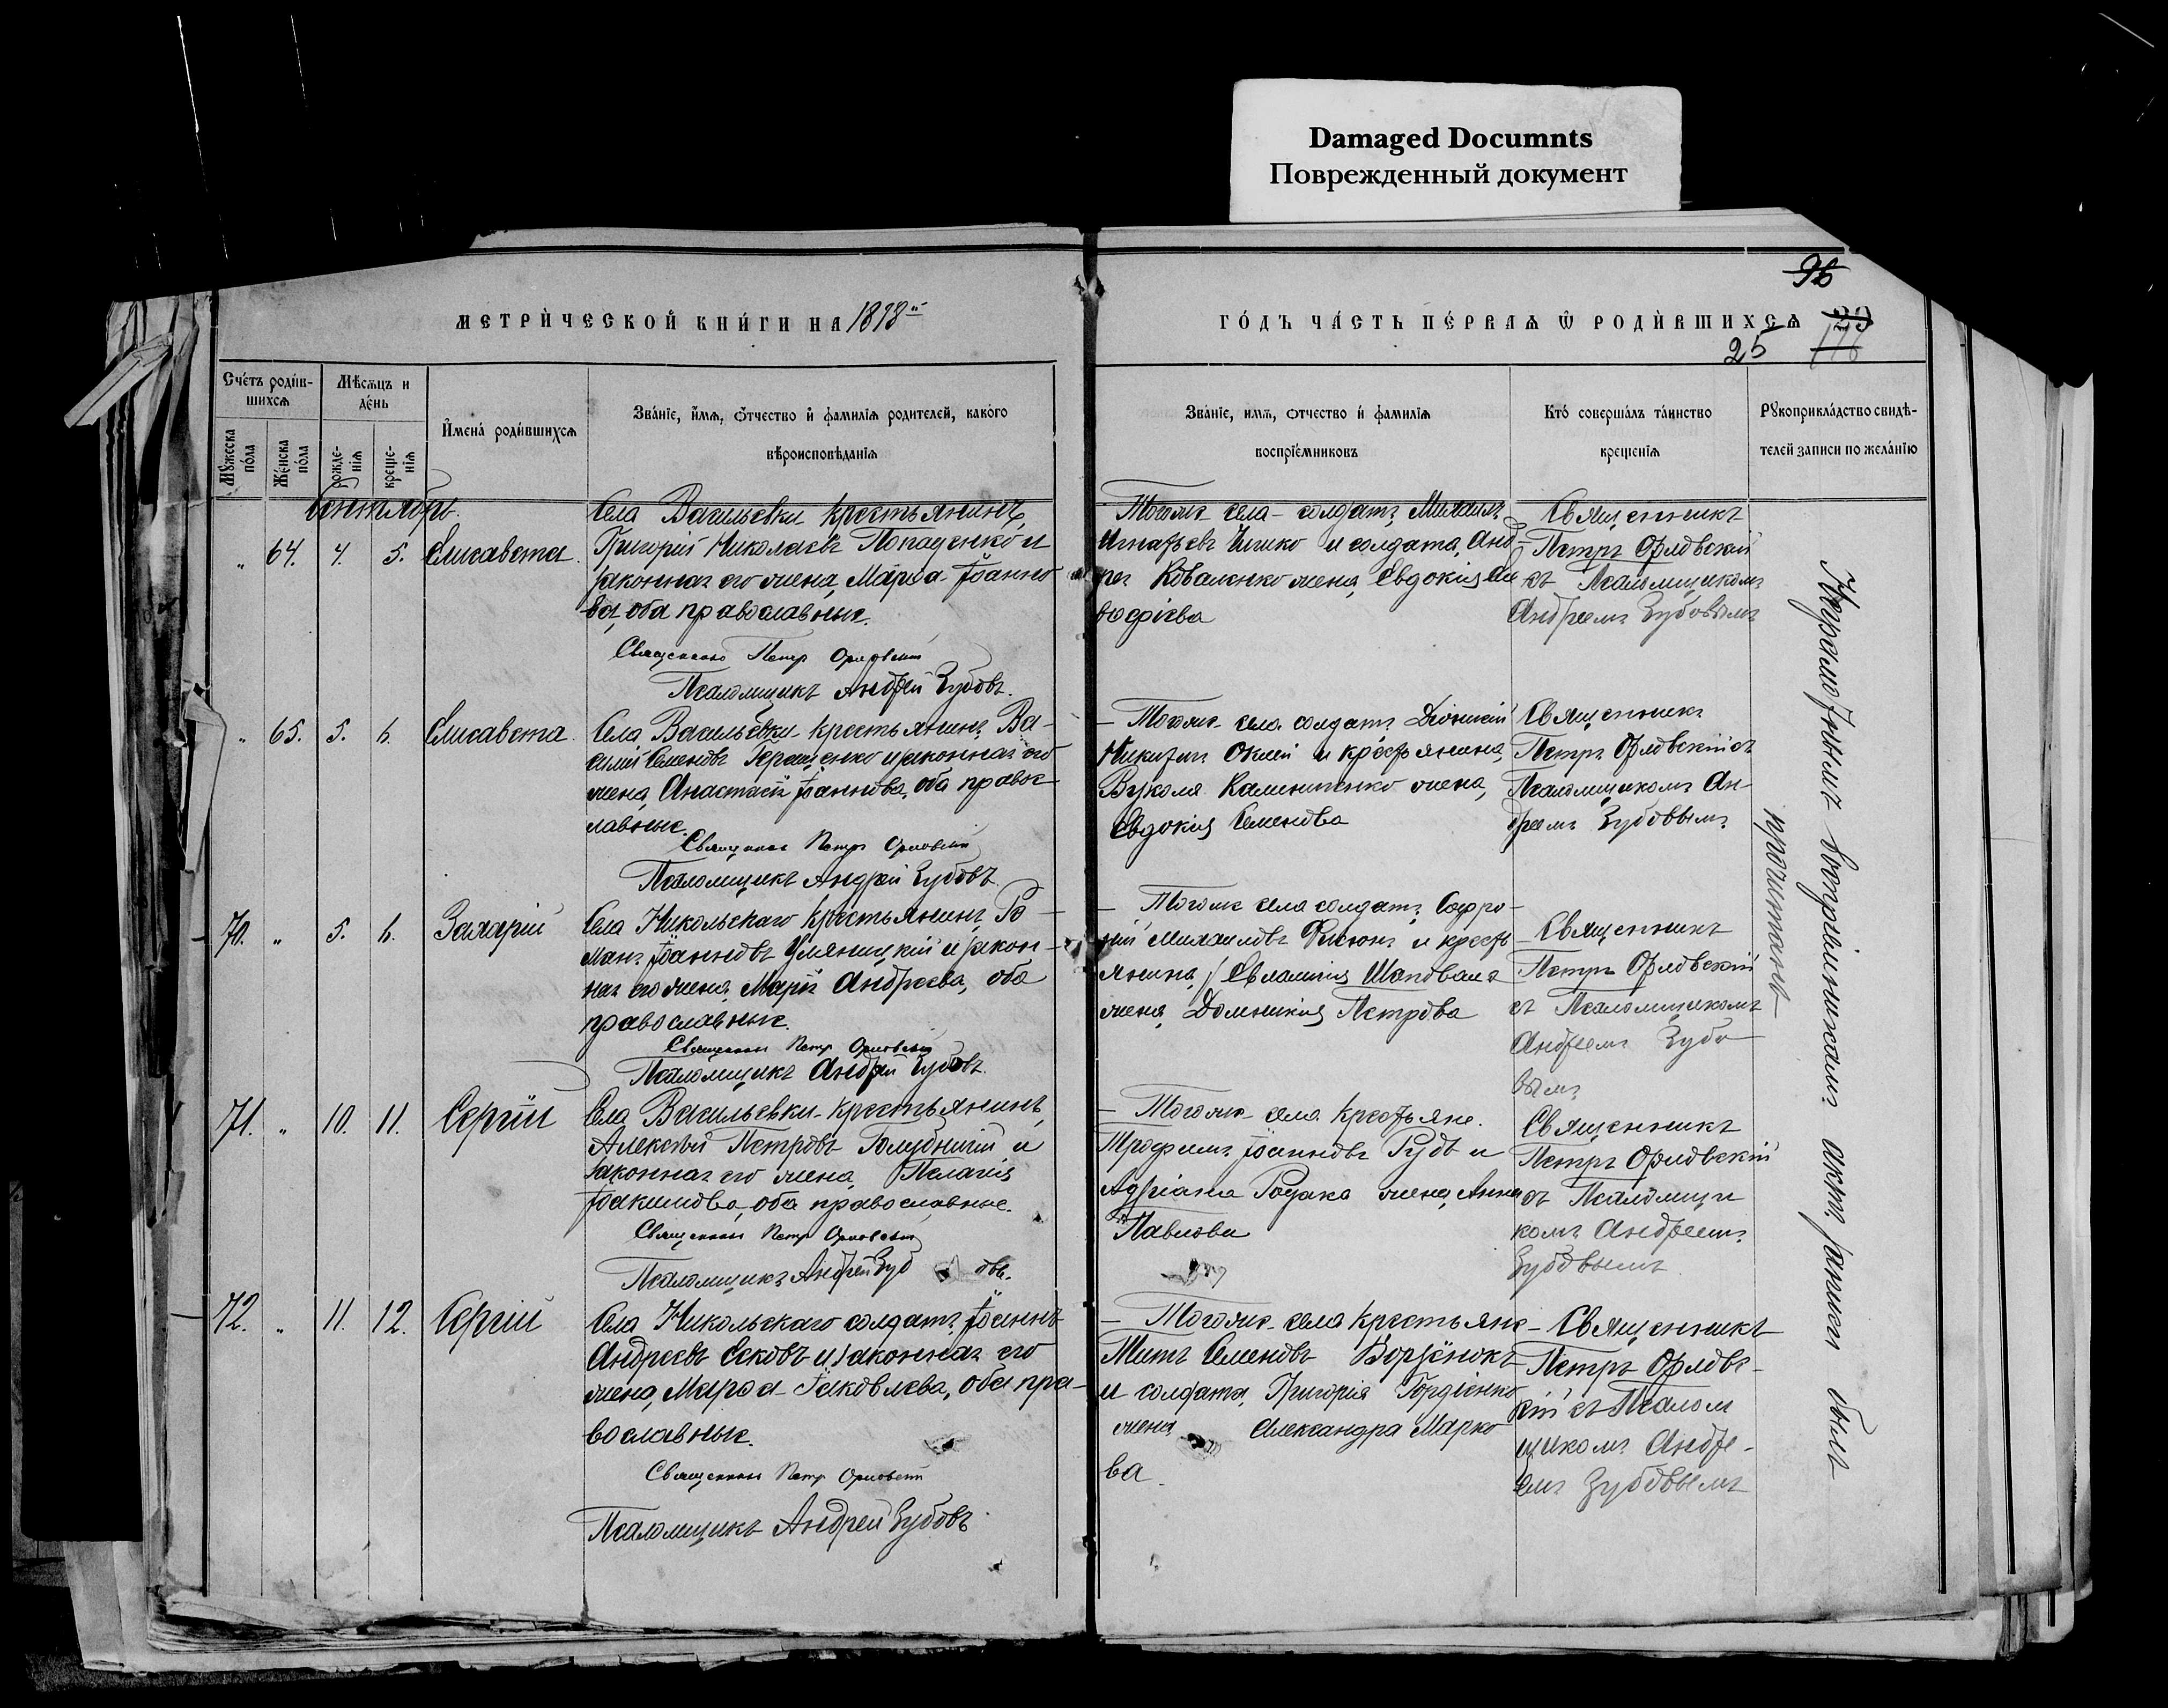 Damaged Documnts
Поврежденный документ
96
МЕТРИЧЕСКОЙ КНИГИ НА 1898й
ГОДЪ ЧАСТЬ ПЕРВАЯ Ѡ РОДИВШИХСЯ
25
Счетъ родив-
шихся
Мѣсяцъ и
день
Имена родившихся
Званіе, имя, отчество и фамилія родителей, какого
вѣроисповѣданія
Мужеска
пола
Женска
пола
рожде-
нія
креще-
нія
Званіе, имя, отчество и фамилія
воспріемниковъ
Кто совершалъ таинство
крещенія
Рукоприкладство свидѣ-
телей записи по желанію
Сентябрь.
„ 64. 4. 5. Елисавета.
Села Васильевки крестьянинъ,
Григорій Николаевъ Попаденко и
законная его жена, Марѳа Іоанно
ва, оба православные.
Священникъ Петръ Орловскій
Псаломщикъ Андрей Зубовъ.
Тогоже села – солдатъ, Михаилъ
Игнатьевъ и солдата, Анд-
рея Коваленко жена, Евдокія Ев
Священникъ
Петръ Орловскій
съ Псаломщикомъ
Андреемъ Зубовымъ
„ 65. 5. 6. Елисавета.
Села Васильевки крестьянинъ Ва-
силій Семеновъ Геращенко и законная его
жена, Анастасія Іоаннова, оба правос-
лавные.
Священникъ Петръ Орловскій
Псаломщикъ Андрей Зубовъ.
– Тогоже села солдатъ Діонисій
Никитинъ и крестьянина,
Вукола Калиниченко жена,
Евдокія Семенова
Священникъ
Петръ Орловскій съ
Псаломщикомъ Ан-
дреемъ Зубовымъ
70. „ 5. 6. Захарій
Села Никольскаго крестьянинъ, Ро-
манъ Іоанновъ Умяницкій и закон-
ная его жена, Марія Андреева, оба
православные.
Священникъ Петръ Орловскій
Псаломщикъ Андрей Зубовъ.
– Тогоже села солдатъ, Софро-
ній Михаиловъ и кресть
янина, Евлампія Шаповала
жена, Домникія Петрова
– Священникъ
Петръ Орловскій
съ Псаломщикомъ
Андреемъ Зубо-
вымъ
71. „ 10. 11. Сергій
Села Васильевки крестьянинъ,
Алексѣй Петровъ Голубничій и
законная его жена, Пелагія
Іоакимова, оба православные.
Священникъ Петръ Орловскій
Псаломщикъ Андрей Зуб овъ.
– Тогоже села крестьяне.
Трофимъ Іоанновъ Рудь и
Адріана Родака жена, Анна
Павлова
Священникъ
Петръ Орловскій
съ Псаломщи
комъ Андреемъ
Зубовымъ
72. „ 11. 12. Сергій
Села Никольскаго солдатъ, Іоаннъ
Андреевъ Есковъ и законная его
жена, Марѳа Іаковлева, оба пра-
вославные.
Священникъ Петръ Орловскій
Псаломщикъ Андрей Зубовъ.
– Тогоже села крестьяне
Титъ Семеновъ
и солдата, Григорія Гордіенко
жена Александра Марко
ва.
– Священникъ
Петръ Орловс-
кій съ Псалом
щикомъ Андре-
емъ Зубовымъ
Неграмотнымъ воспріемникамъ актъ записи былъ
прочитанъ